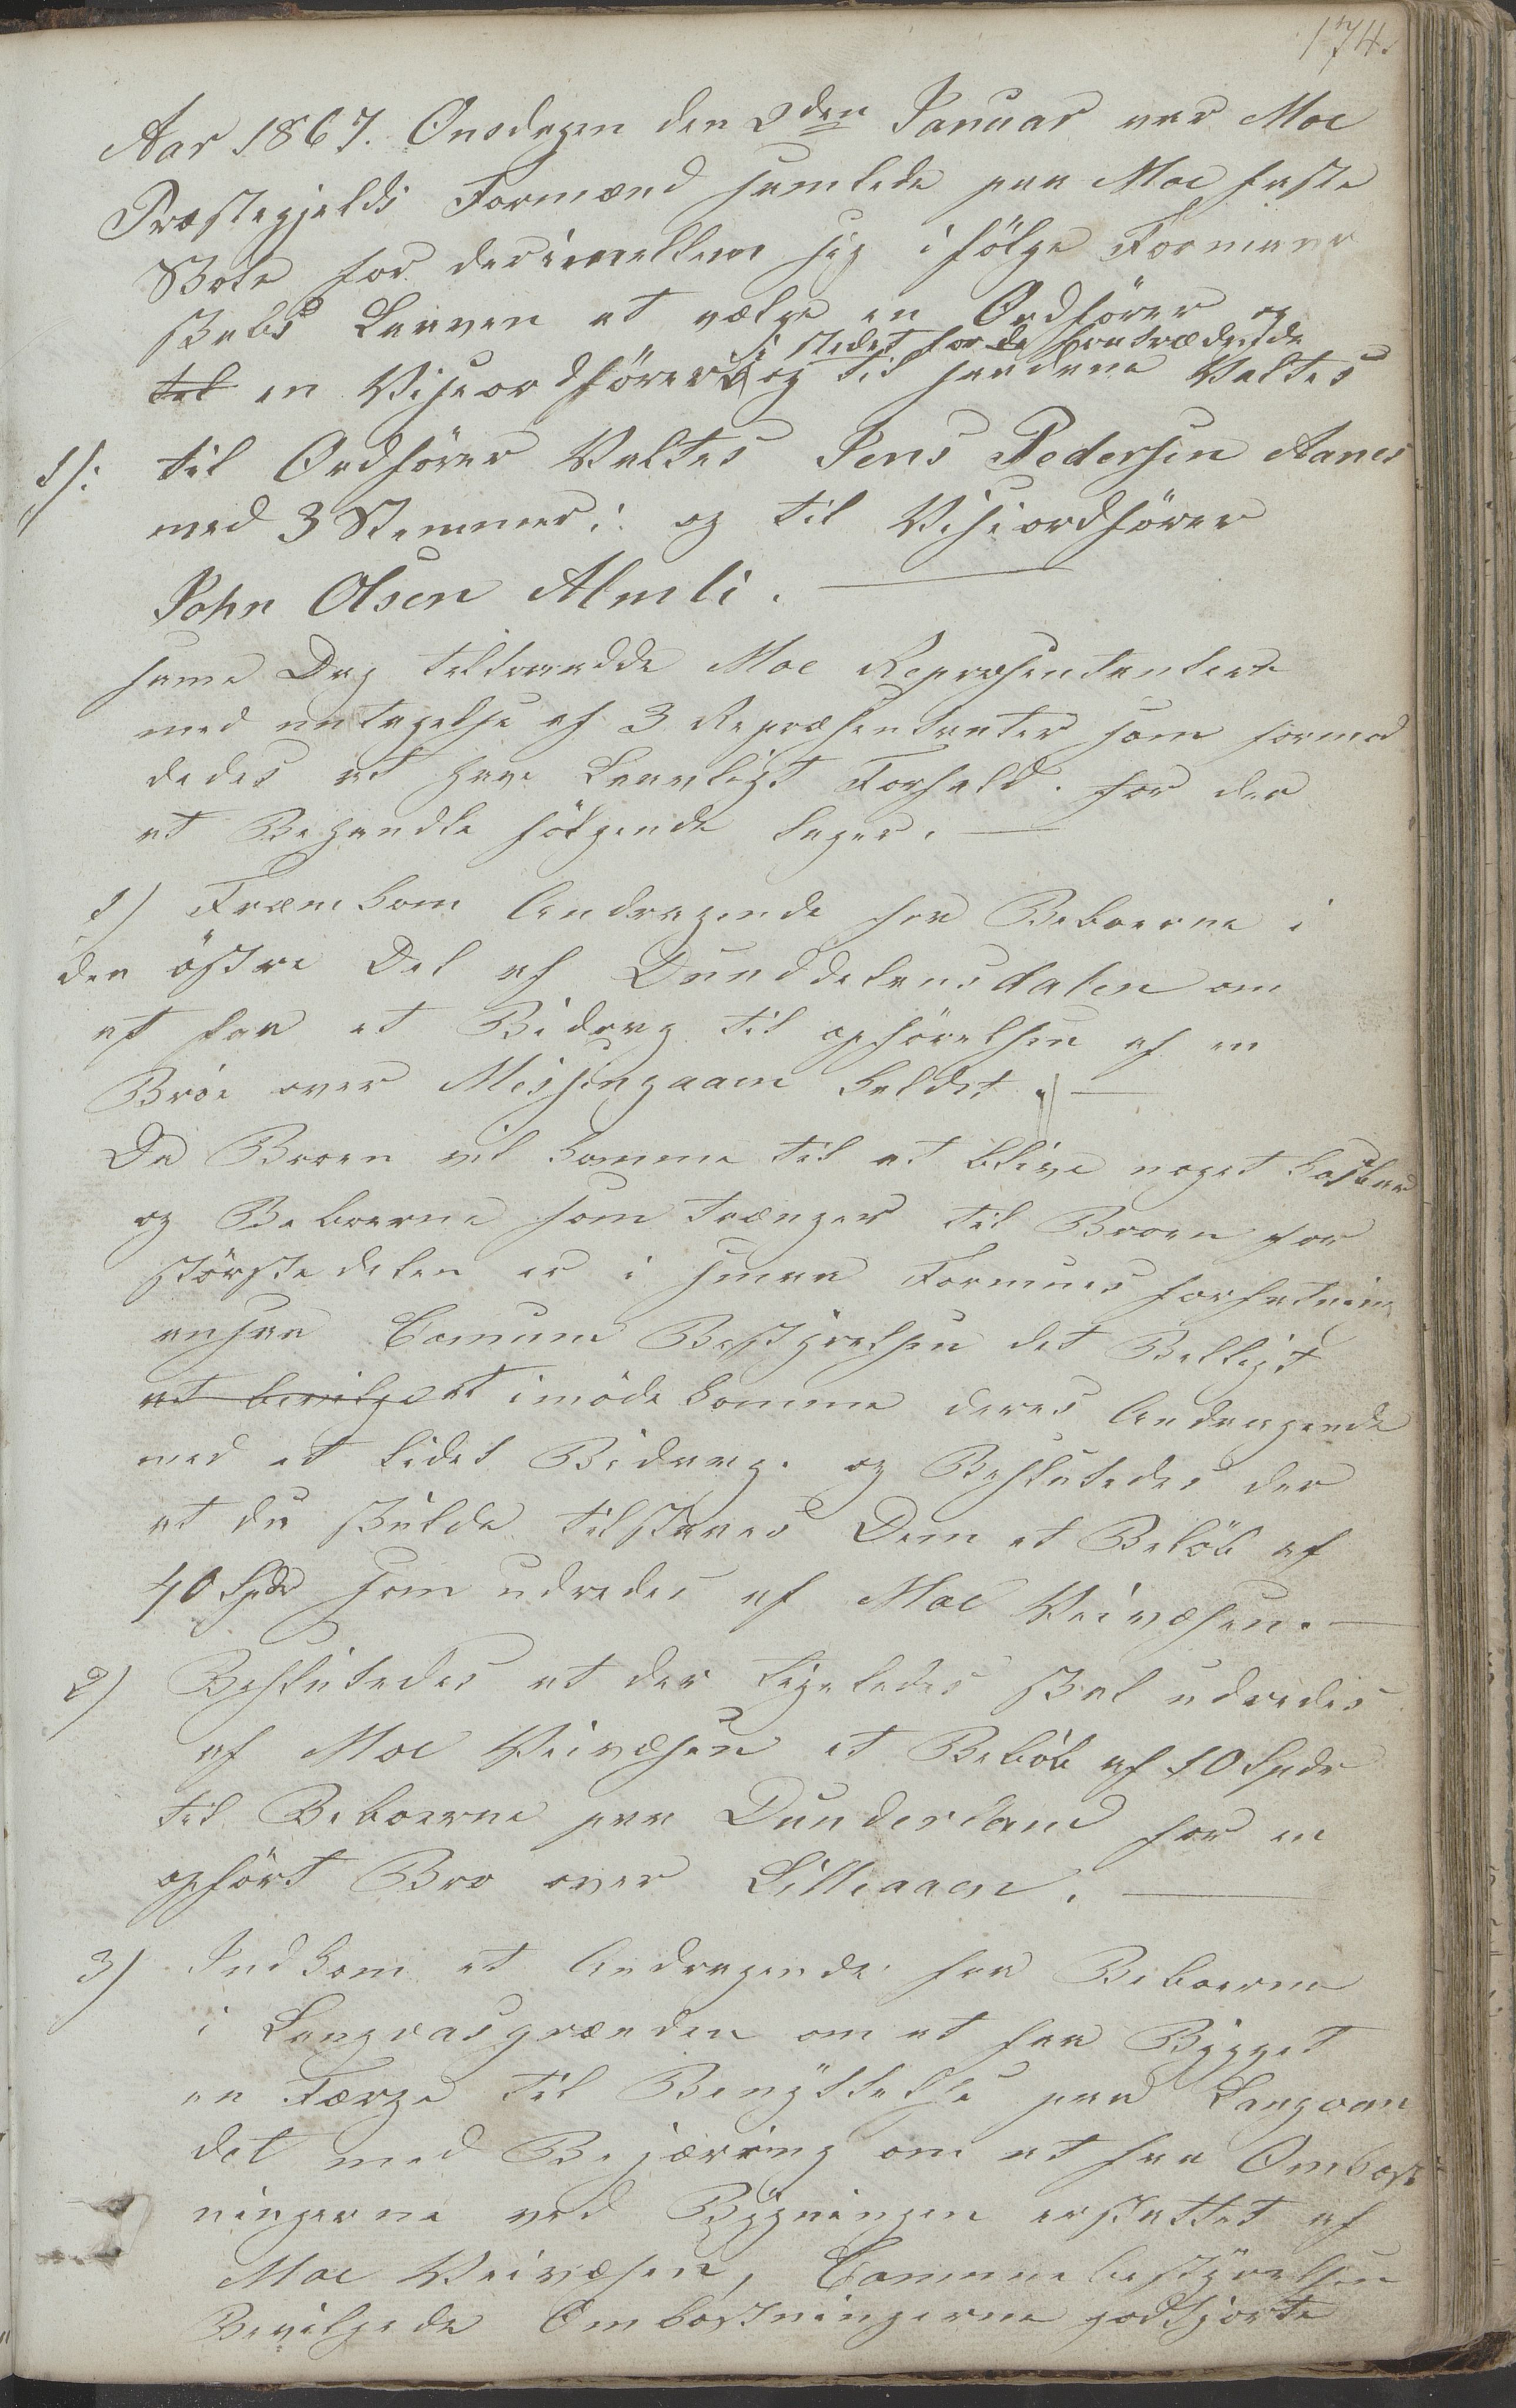 174.
Aar 1867. Onsdagen den 2den Januar var Moe
Præstegjelds Formænd samlede paa Moe faste
Bole for derimellem sig ifölge Formann
skabs Loven at vælge en Ordförer og
i stedet for de fratrædende
tel en Viseordförer og til saadane Valtes
1/: til Ordförer Valtes Jens Pedersen Aanes
med 3 Stemmer: og til Visiordförer
John Olsen Almli.
same Dag tiltraadde Moe Repræsentantere
med untagelse af 3 Repræsentanter som formo
dedes at have Laavligt Forfald. for der
at Behandle fölgende sager.
1) Fræmkom Andragende fra Beboerne i
den östre Del af Dunddelansdalen om
at faa et Bidrag til opförelsen af en
Broe over Messingaaen kaldet.
Da Broen vil komme til at blive noget kostbar
og Beboerne som trænger til Broen for
störstedelen er i smaa Formues forfatning
ansaa Comune Bestyrelsen det Belligt
at bevilge at imöde komme deres Andragende
med et lidet Bidrag. og Beslutedes der
at du skulde tilstaaes Dem et Belöb af
40 Spdr som udredes af Moe Veivæsen.
2) Beslutedes at der ligeledes skal udredes
af Moe Veivæsen et Beböb af 10 Spdr
til Beboerne paa Dunderland for en
opfört Bro over Lilleaaen.
3) Indkom et Andragende fra Beboerne
i Langvasgrænden om at faa Bygget
en Færge til Benyttelse paa Langvan
det med Begjæring om at faa Ombost
ningerne ved Bygningen erstattet af
Moe Veivæsen, Communebestyrelsen
Bevilgede Ombostningerne godtgjorte